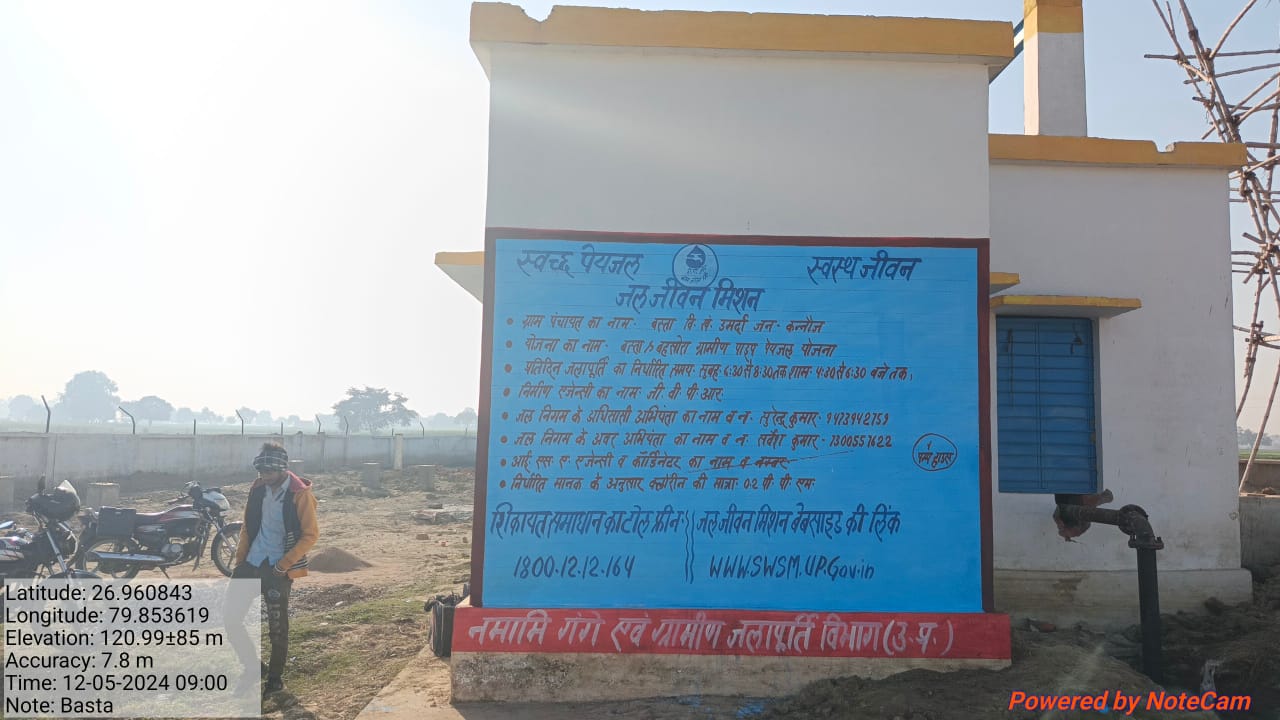 स्वच्छ पेयजल स्वस्थ जीवन
जल जीवन मिशन
• ग्राम पंचायत का नाम- बस्ता वि. खं. उमर्दा जन- कन्नौज
• योजना का नाम- बस्ता/बहसोरा ग्रामीण पाइप पेयजल योजना
• प्रतिदिन जलापूर्ति का निर्धारित समय- सुबह- 6:30 से 8:30 तक, शाम- 4:30 से 6:30 बजे तक,
• निर्माण एजेन्सी का नाम- जी. वी. पी. आर.
• जल निगम के अधिशासी अभियंता का नाम व न. सुरेन्द्र कुमार- 9473942759
• जल निगम के अवर अभियंता का नाम व न. सर्वेश कुमार-
• आई. एस. ए. एजेन्सी व कॉर्डिनेटर का नाम व नम्बर-
• निर्धारित मानक के अनुसार क्लोरीन की मात्रा- 0.2 पी. पी. एम.
पम्प हाउस
शिकायत समाधान का टोल फ्री न-
1800.12.12.164
जल जीवन मिशन वेबसाइड की लिंक
WWWSWSM.UP.Gov.in
नमामि गंगे एवं ग्रामीण जलापूर्ति विभाग (उ.प्र.)
Latitude: 26.960843
Longitude: 79.853619
Elevation: 120.99±85 m
Accuracy: 7.8 m
Time: 12-05-2024 09:00
Note: Basta
Powered by NoteCam